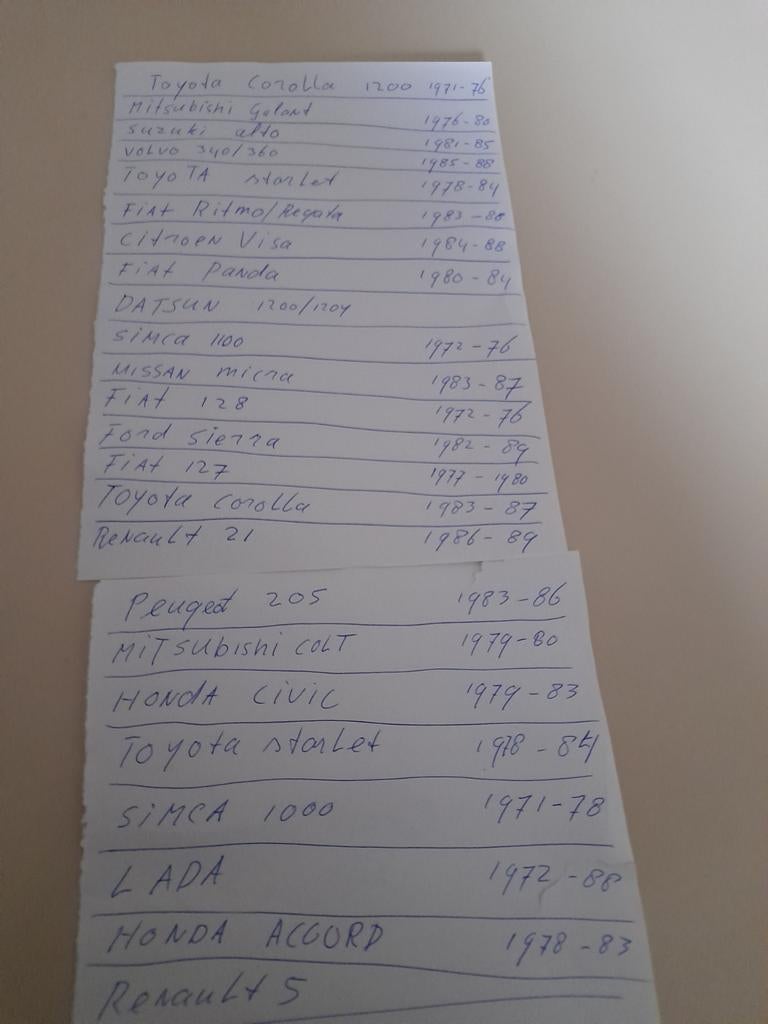 Toyota Corolla 1200 1971-76
Mitsubishi Galant 1976-80
Suzuki alto 1981-85
VOLVO 340/360 1985-88
TOYOTA starlet 1978-84
FiAt Ritmo/Regata 1983-88
CitroEN Visa 1984-88
FiAt Panda 1980-84
DATSUN 1200/1204
SiMca 1100 1972-76
NISSAN micra 1983-87
FiAt 128 1972-76
Ford Sierra 1982-89
FiAt 127 1977-1980
Toyota Corolla 1983-87
Renault 21 1986-89
Peugeot 205 1983-86
MiTSUbishi COLT 1979-80
HONdA CiViC 1979-83
Toyota starlet 1978-84
SiMCA 1000 1971-78
LADA 1972-88
HONDA ACCORD 1978-83
Renault 5